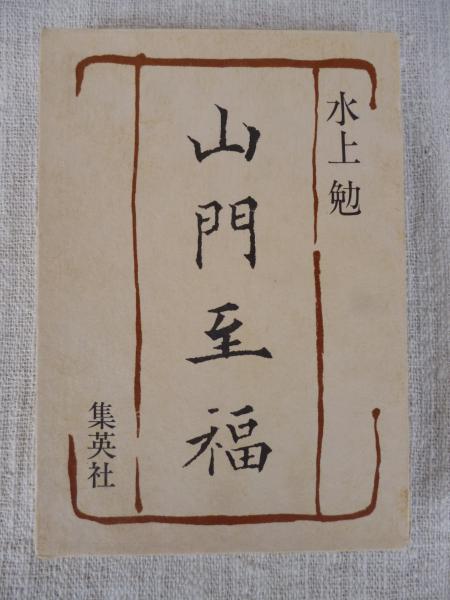 水上勉
山門至福
集英社